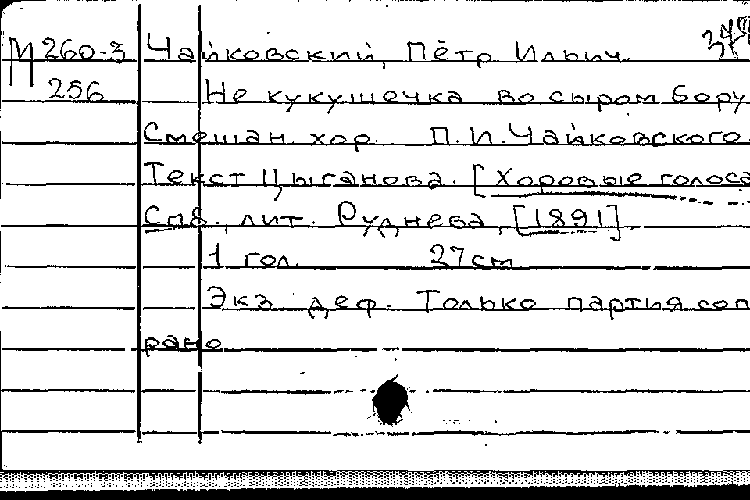 М 260-3 Чайковский, Пётр Ильич.
256 Не кукушечка во сыром бору
Смешан. хор. П.И.Чайковского.
Текст Цыганова. [Хоровые голоса
Спб., лит. Руднева, [1891].
1 гол. 27см
Экз. деф. Только партия соп
рано